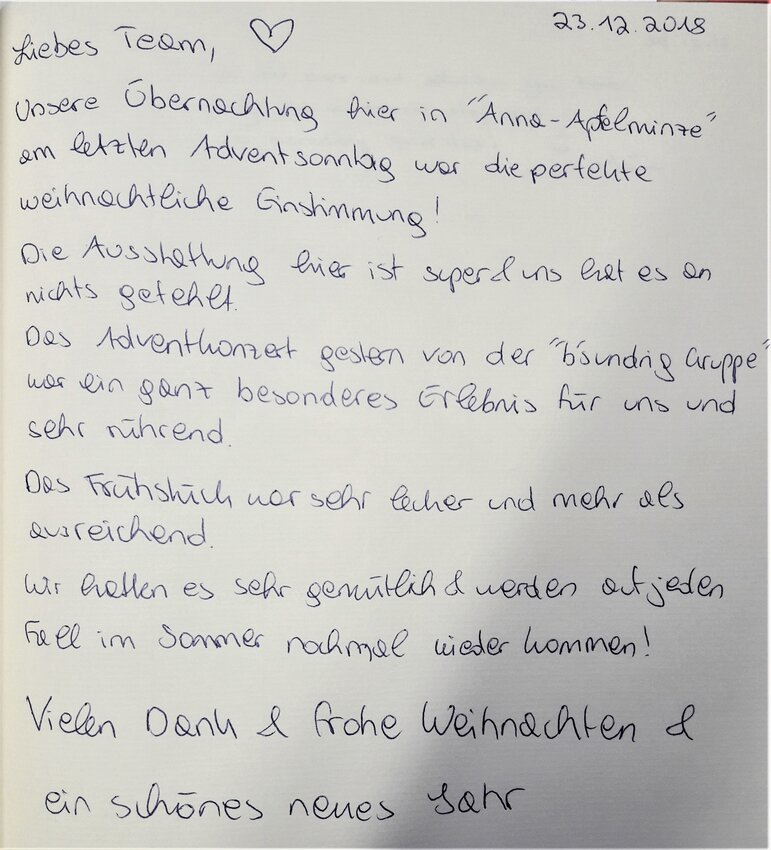 23.12.2018
Liebes Team, ♡
Unsere Übernachtung hier in "Anna-Apfelminze"
am letzten Adventsonntag war die perfekte
weihnachtliche Einstimmung!
Die Ausstattung hier ist super & uns hat es an
nichts gefehlt.
Das Adventkonzert gestern von der "b'sundrig Gruppe"
war ein ganz besonderes Erlebnis für uns und
sehr rührend.
Das Frühstück war sehr lecker und mehr als
ausreichend.
Wir hatten es sehr gemütlich & werden auf jeden
Fall im Sommer nochmal wieder kommen!
Vielen Dank & frohe Weihnachten &
ein schönes neues Jahr